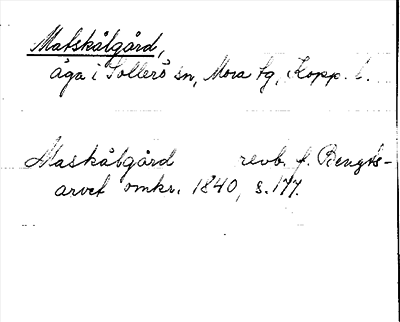 Matskålgård,
äga i Sollerö sn, Mora tg, Kopp. l.
Maskålgård revb. f. Bengts-
arvet omkr. 1840, s. 177.